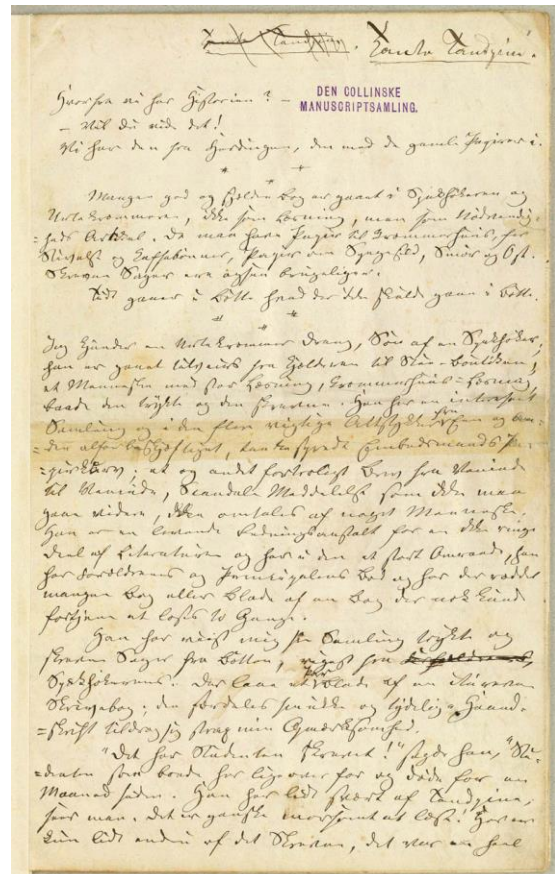 Tante Tandpine. Tante Tandpine.
DEN COLLINSKE
MANUSCRIPTSAMLING.
Hvorfra vi har Historien? –
– Vil du vide det!
Vi har den fra Fjerdingen, den med de gamle Papirer i.
Mangen god og sjelden Bog er gaaet i Spekhøkeren og
Urtekrammeren, ikke som Læsning, men som Nødvendig-
=heds Artikel. De maa have Papir til Kræmmerhuus, for
Stivelse og Kaffebønner, Papir om Spegesild, Smør og Ost.
Skrevne Sager ere ogsaa brugelige.
Tidt gaaer i Bøtte hvad der ikke skulde gaae i Bøtte.
Jeg kjender en Urtekrammer Dreng, Søn af en Spekhøker,
han er gaaet tilveirs fra Kjelderen til Stue-Boutiken,
et Menneske med stor Læsning, Kræmmerhuus=Læsning,
baade den trykte og den skrevne. Han har en interessant
Samling og i den flere vigtige Aktstykker fra
en altfor beskjæftiget, adspredt Embedsmands Pa-
=pirkurv; et og andet fortroligt Brev fra Veninde
til Veninde, Scandale Meddelelser som ikke maa
gaae videre, ikke omtales af noget Menneske.
Han er en levende Redningsanstalt for en ikke ringe
Deel af Literaturen og har i den et stort Omraade, han
har Forældrenes og Principalens Bod og har der reddet
mangen Bog eller Blade af en Bog der nok kunde
fortjene at læses to Gange.
Han har viist mig sin Samling trykte og
skrevne Sager fra Bøtten, rigest fra
Spekhøkerens. Der laae et Par Blade af en større
Skrivebog; den særdeles smukke og tydelige Haand-
=skrift tildrog sig strax min Opmærksomhed.
"Det har Studenten skrevet!" sagde han, "Stu-
=denten som boede her ligeover for og døde for en
Maaned siden. Han har lidt svært af Tandpine,
seer man. Det er ganske morsomt at læse! Her er
kun lidt endnu af det Skrevne, det var en heel